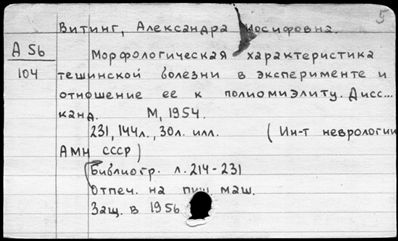 5
Витинг, Александра Иосифовна.
А 56
104
Морфологическая характеристика
тешинской болезни в эксперименте и
отношение ее к полиомиэлиту. Дисс...
канд. М, 1954.
231, 144л., 30л. илл. (Ин-т неврологии
АМН СССР)
(Библиогр. л. 214-231
Отпеч. на пиш. маш.
Защ. в 1956